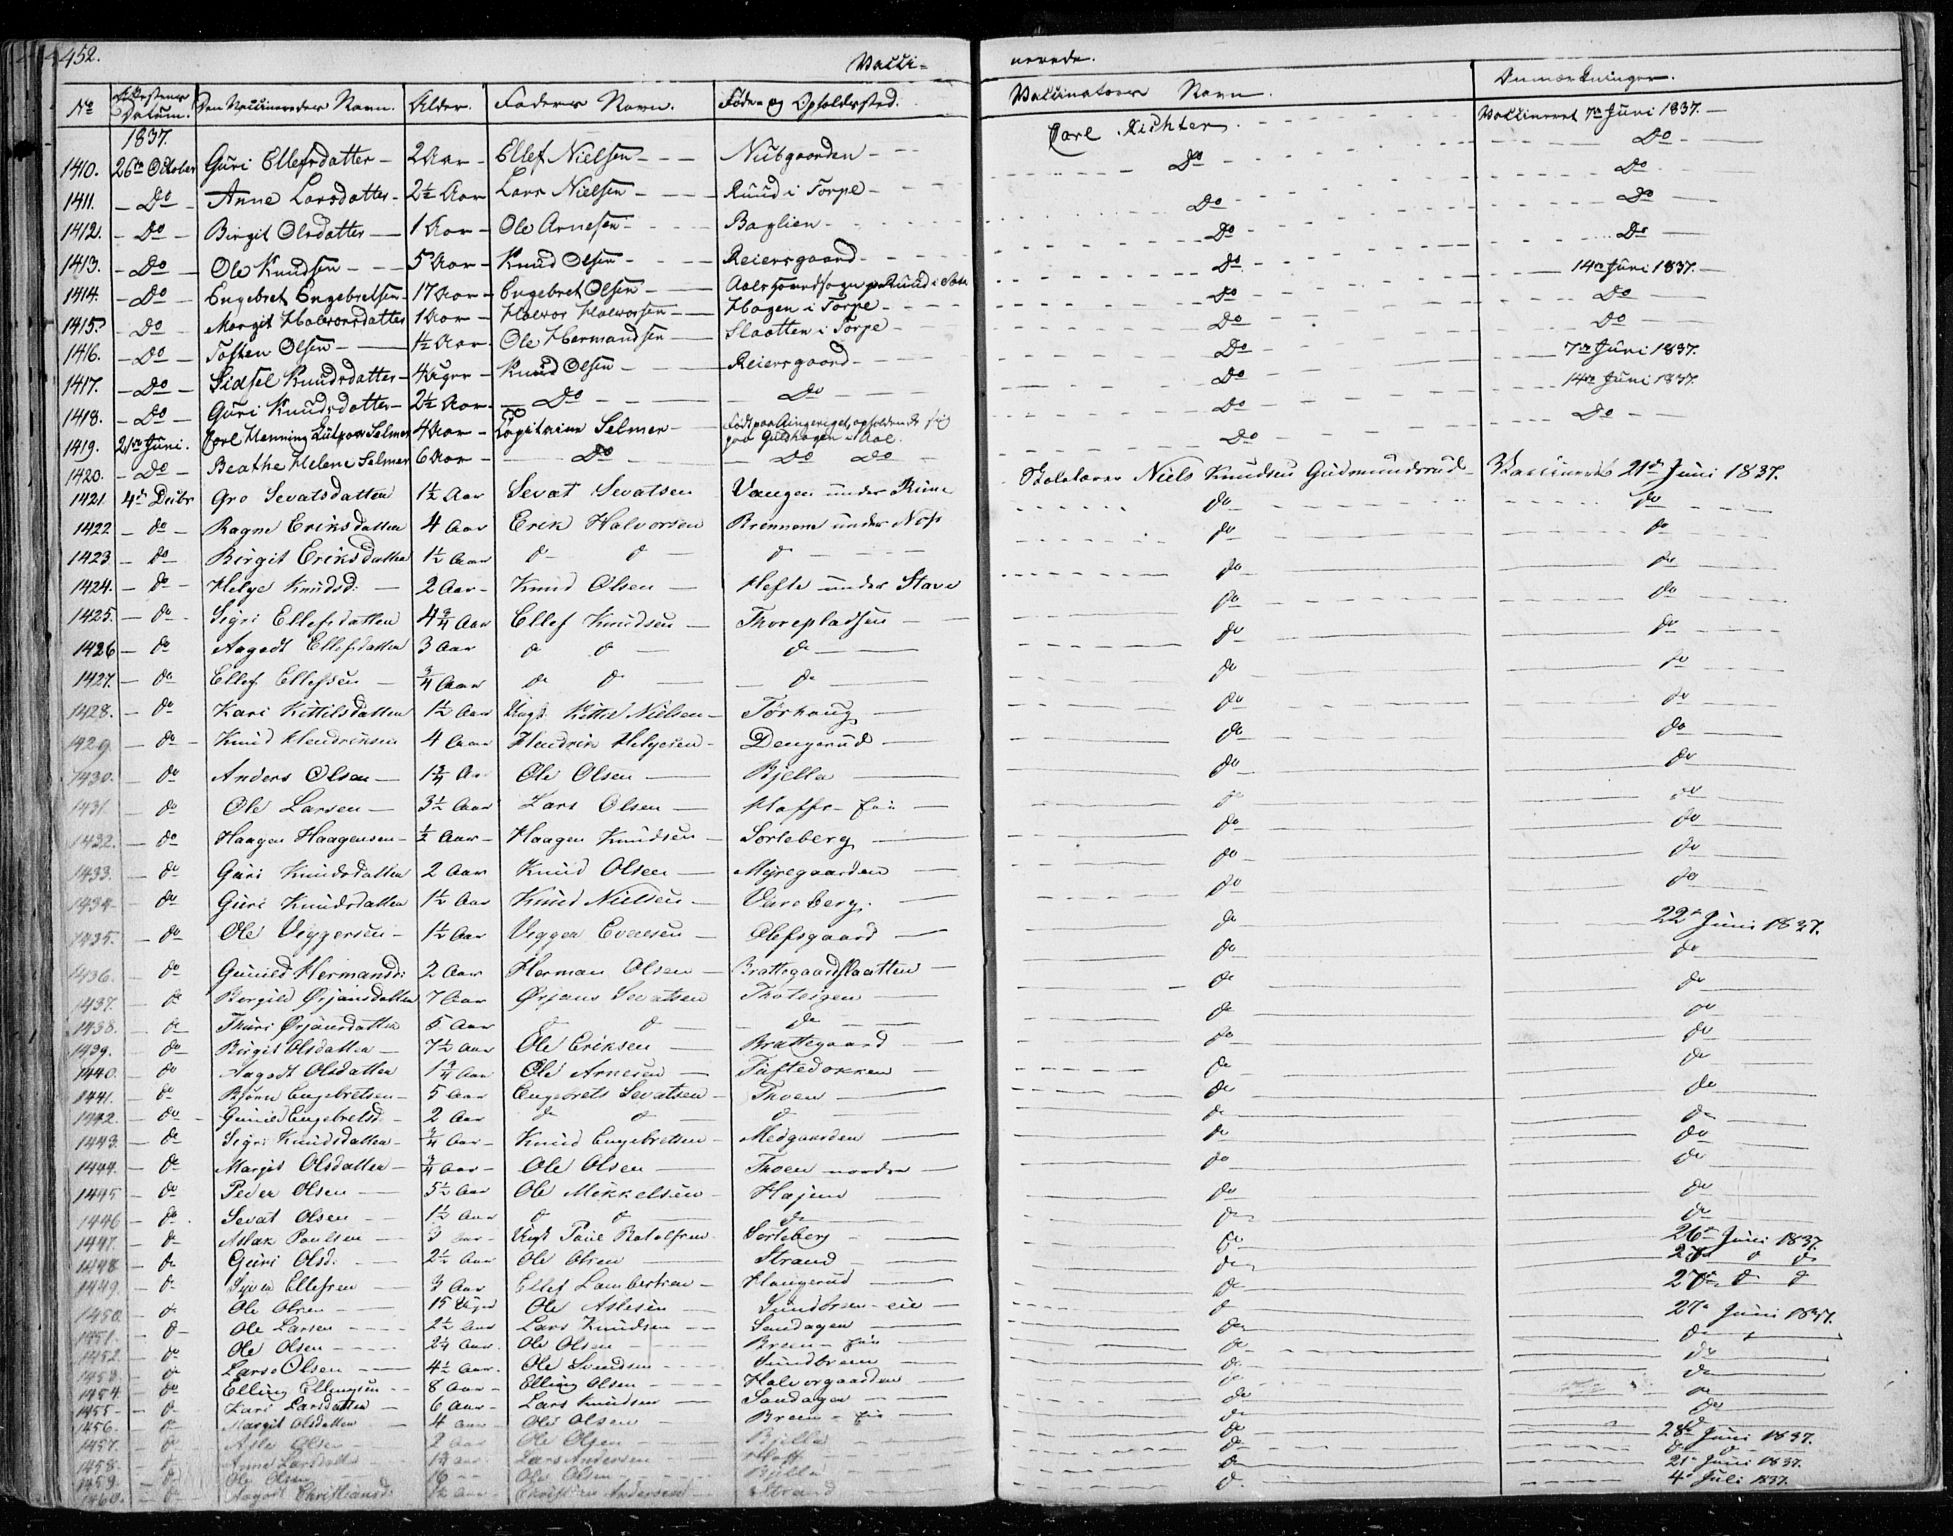 452.
Vacci-
nerede.
No Attestens Datum. Den Vaccineredes Navn. Alder. Faders Navn. Føde- og Opholdssted. Vaccinateurs Navn. Anmærkninger.
1837.
1410. 26de October Guri Ellefsdatter 2 Aar Ellef Nielsen Nubgaarden Carl Richter Vaccineret 7de Juni 1837.
1411. Do Anne Larsdatter 2½ Aar Lars Nielsen Ruud i Torpe Do Do
1412. Do Birgit Olsdatter 1 Aar Ole Arnesen Baglien Do Do
1413. Do Ole Knudsen 5 Aar Knud Olsen Reiersgaard Do Do
1414. Do Engebret Engebretsen 17 Aar Engebret Olsen Ruud i Do Do
1415. Do Margit Halvorsdatter 1 Aar Halvor Halvorsen Hagen i Torpe Do 14de Juni 1837.
1416. Do Tosten Olsen 1½ Aar Ole Hermandsen Slaatten i Torpe Do Do
1417. Do Sidsel Knudsdatter 4 Uger Knud Olsen Reiersgaard Do Do
1418. Do Guri Knudsdatter 2½ Aar Do Do Do 7de Juni 1837.
1419. 21de Juni. Carl Henning Lützow Selmer 4 Aar Capitaine Selmer Født paa Ringeriget, opholdende sig paa Guldhagen i Aal. Do 14de Juni 1837.
1420. Do Beathe Helene Selmer 6 Aar Do Do Do Do Do
1421 4de Decbr Gro Sevatsdatter 1½ Aar Sevat Sevatsen Vangen under Rime Skolelærer Niels Knudsen Gudmundsrud Vaccinerede 21de Juni 1837.
1422 do Ragne Eriksdatter 4 Aar Erik Halvorsen Brennene under Noss do do
1423. do Birgit Eriksdatter 1½ Aar do do do do do
1424. do Helge Knudsd: 2 Aar Knud Olsen Hefte under Stave do do
1425. do Sigri Ellefsdatter 4¾ Aar Ellef Knudsen Thorepladsen do do
1426 do Aagodt Ellefsdatter 3 Aar do do do do do
1427. do Ellef Ellefsen ¾ Aar do do do do do
1428. do Kari Kittilsdatter 1½ Aar Ungk. Kittil Nielsen Torhaug do do
1429. do Knud Hendriksen 4 Aar Hendrik Helgesen Dengerud do do
1430. do Anders Olsen 1¾ Aar Ole Olsen Bjella do do
1431. do Ole Larsen 3½ Aar Lars Olsen do do
1432. do Haagen Haagensen ½ Aar Haagen Knudsen Sorteberg do do
1433. do Guri Knudsdatter 2 Aar Knud Olsen Myregaarden do do
1434. do Guri Knudsdatter 1½ Aar Knud Nielsen Vareberg. do do
1435. do Ole Viggersen 1½ Aar Vigger Evensen Olefsgaard do 22de Juni 1837.
1436. do Gunild Hermansd: 2 Aar Herman Olsen Brattegaardslaatten do do
1437. do Bergild Ørjansdatter 7 Aar Ørjans Sevatsen Thoteigen do do
1438. do Thuri Ørjansdatter 5 Aar do do do do do
1439. do Birgit Olsdatter 7½ Aar Ole Eriksen Brattegaard do do
1440. do Aagodt Olsdatter 1¾ Aar Ole Arnesen Tuftedokken do do
1441. do Bjørn Engebretsen 5 Aar Engebrets Sevatsen Thoen do do
1442. do Gunild Engebretsd. 2 Aar do do do do do
1443 do Sigri Knudsdatter ¾ Aar Knud Engebretsen Medgaarden do do
1444. do Margit Olsdatter ¾ Aar Ole Olsen Thoen nordre do do
1445 do Peder Olsen 5½ Aar Ole Mikkelsen do do
1446 do Sevat Olsen 1½ Aar do do do do do
1447. do Aslak Paulsen 3 Aar Ungk Paul Botolfsen Sorteberg do 26de Juni 1837.
1448 do Guri Olsd. 2½ Aar Ole Olsen Strand do do do
1449. do Ellefsen 3 Aar Ellef Lambertsen Haugerud do 27de do do
1450. do Ole Olsen 15 Uger Ole Aslesen Sundbreen eie do 27de Juni 1837.
1451. do Ole Larsen 2½ Aar Lars Knudsen Sandagen do do
1452. do Ole Olsen 2¼ Aar Ole Olsen Breen eie do do
1453. do Lars Olsen 4½ Aar Ole Sundbreen do do
1454 do Elling Ellingsen 8 Aar Elling Olsen Halvorgaarden do do
1455 do Kari Larsdatter 6 Aar Lars Knudsen Sandagen do do
1456. do Margit Olsdatter 4 Aar Ole Olsen Breen eie do do
1457. do Asle Olsen 2 Aar Ole Olsen Bjella do 28de Juni 1837.
1458. do Anne Larsdatter Lars Andersen Hoff do do
1459. do Ole Olsen 16 Ole Olsen Bjella do 21de Juni 1837.
1460. do Aagodt Christiansd: Christian Andersen Strand do 4de Juli 1837.